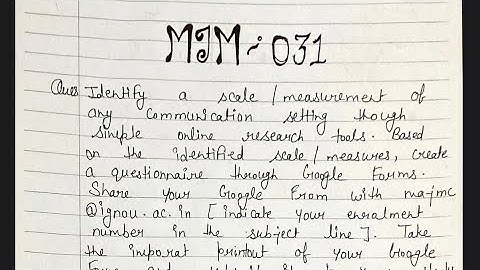 MJM-031
Ques Identify a scale/measurement of
any communication setting though
simple online research tools. Based
on the identified scale/measures, create
a questionnaire through Google Forms.
Share your Goggle From with ma-jmc
@ignou.ac.in [indicate your enralment
number in the subject line]. Take
the imporat printout of your Goggle